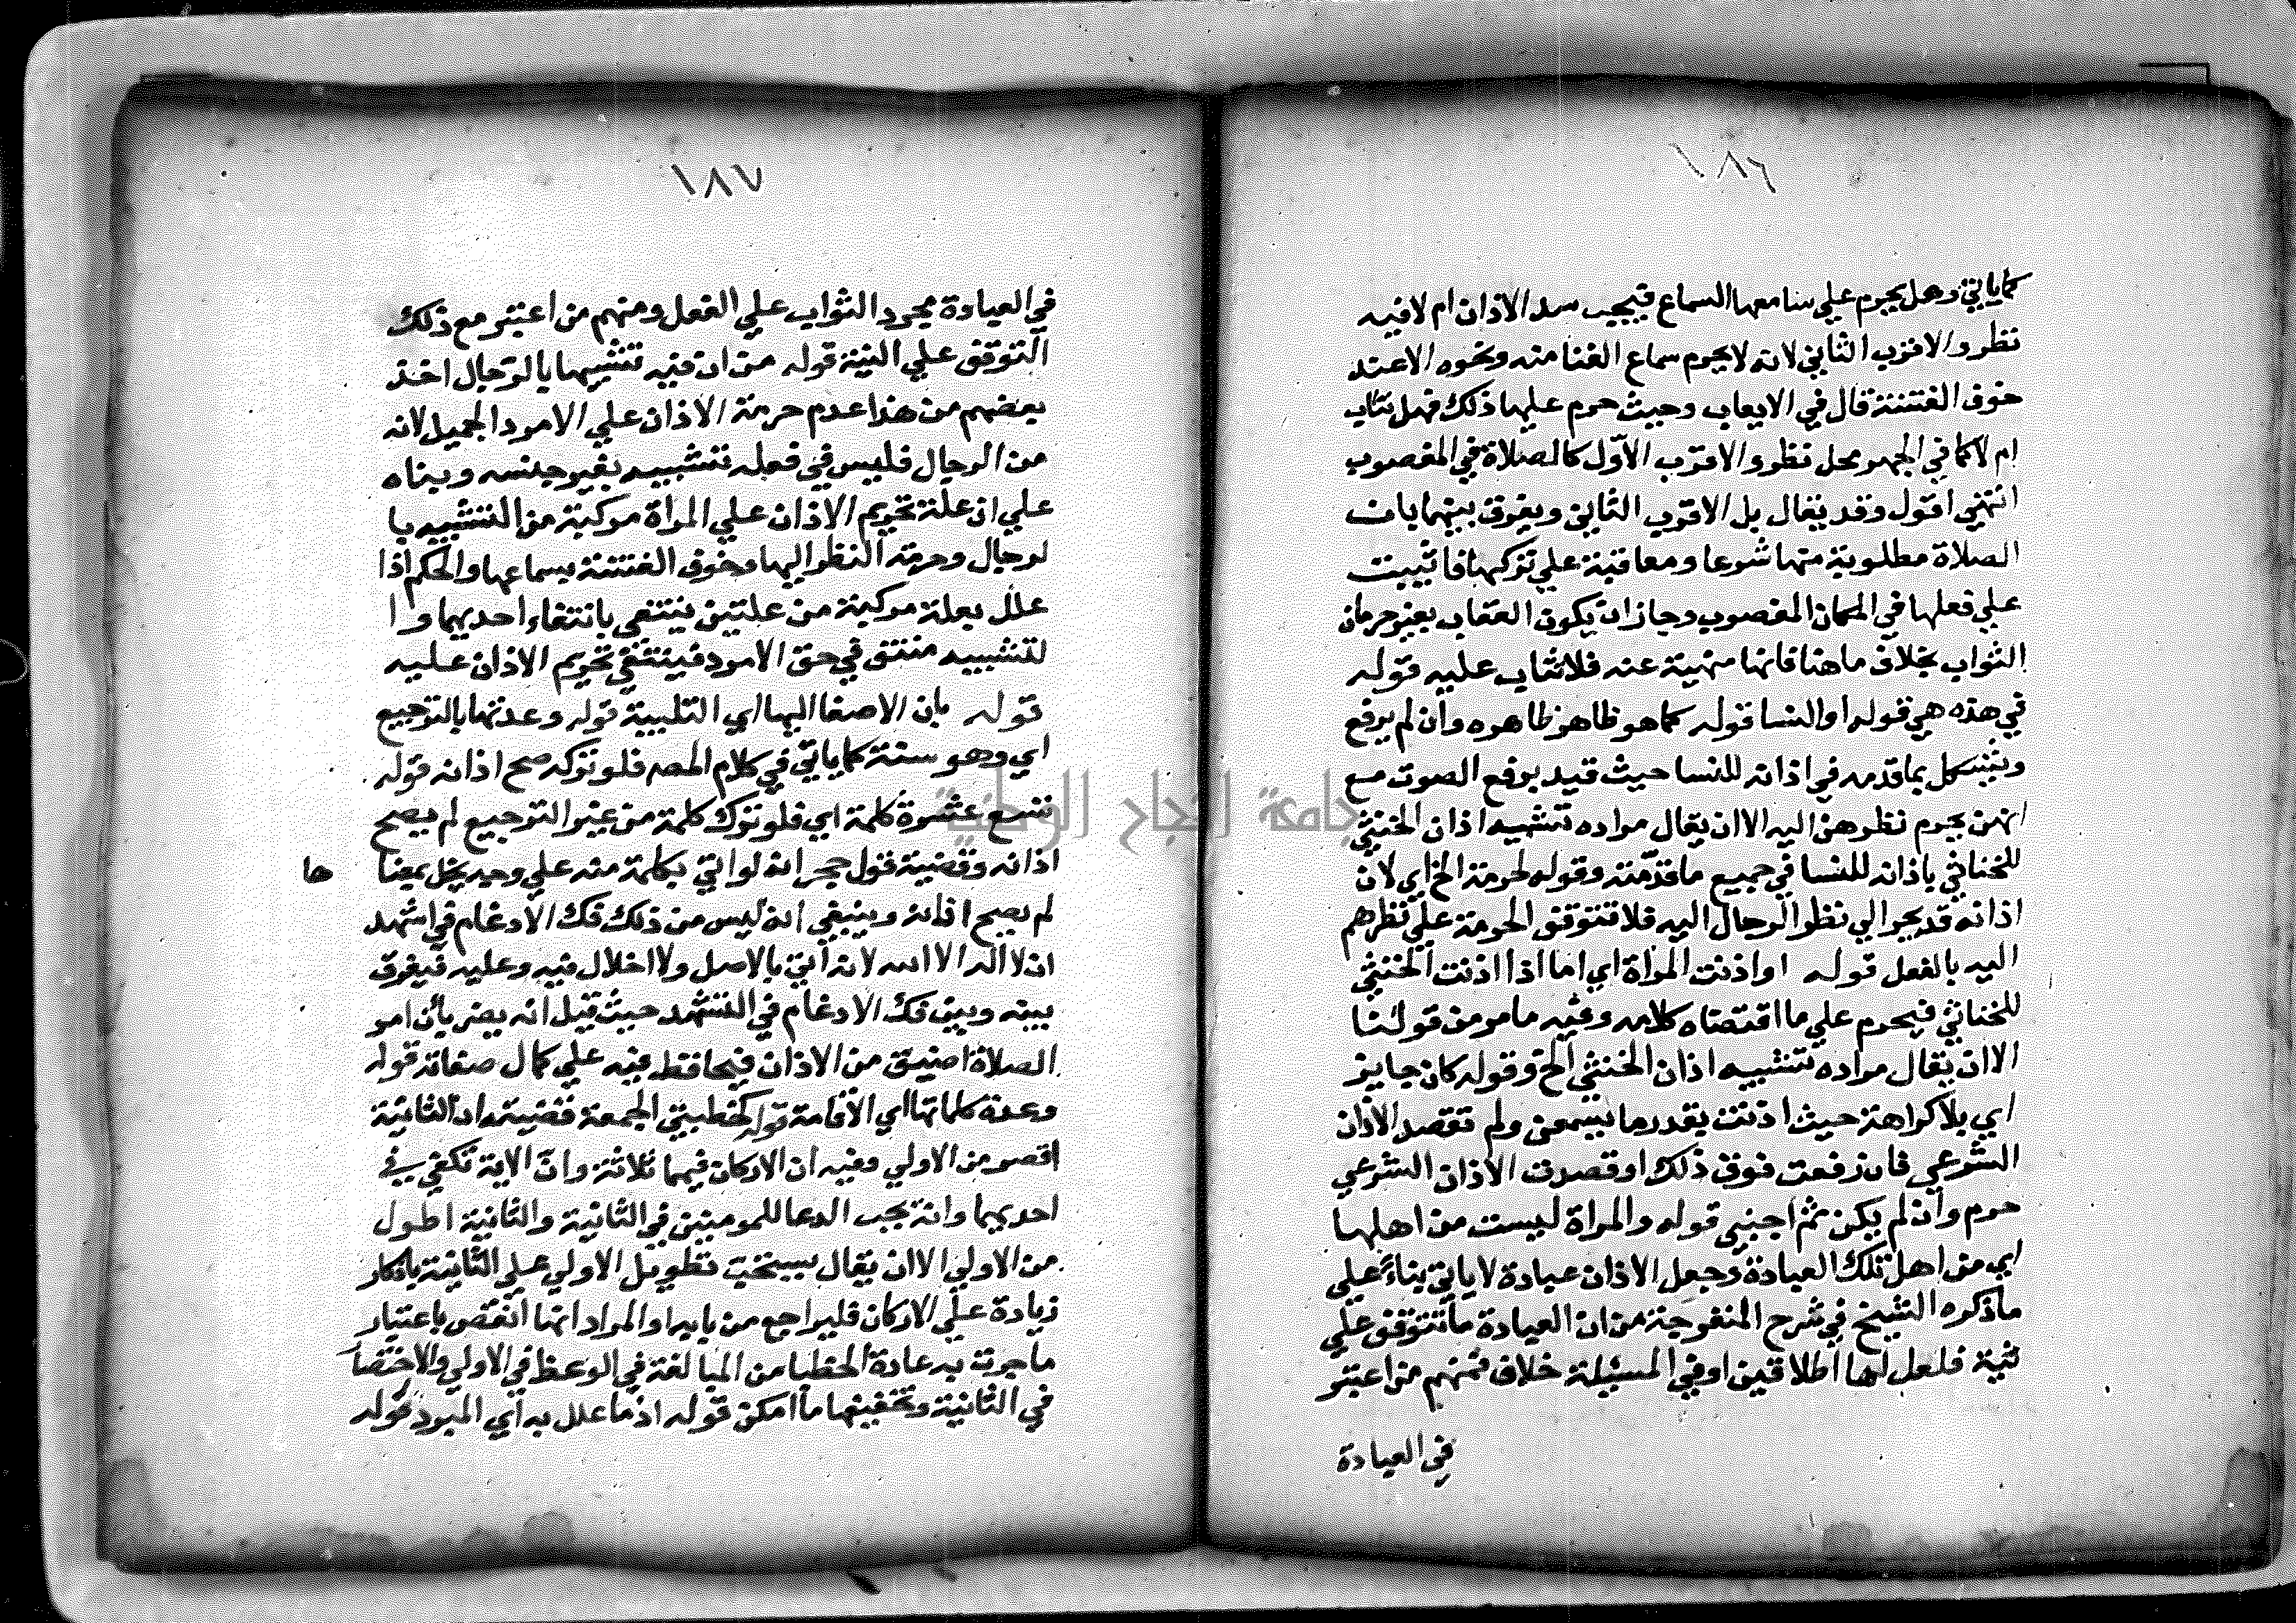 ١٨٦
كما ياتي وهل يحرم علي سامعها السماع فيجب سد الاذان ام لا فيه
نظر والاقرب الثاني لانه لا يحرم سماع الغنا منه ونحوه الا عند
خوف الفتنة قال في الايعاب وحيث حرم عليها ذلك فهل تثاب
ام لا كما في الجهر محل نظر والاقرب الاول كالصلاة في المغصوب
انتهي اقول وقد يقال بل الاقرب الثاني ويفرق بينهما بان
الصلاة مطلوبة منها شرعا ومعاقبة علي تركها فاثيبت
علي فعلها في المكان المغصوب وجاز ان يكون العقاب بغير حرمان
الثواب بخلاف ما هنا فانها منهية عنه فلا تثاب عليه قوله
في هذه هي قوله او النسا قوله كما هو ظاهر ظاهره وان لم يرفع
ويشكل بما قدمه في اذانه للنسا حيث قيد برفع الصوت مع
انهن يحرم نظرهن اليه الا ان يقال مراده تشبيه اذان الخنثي
للخناثي باذانه للنسا في جميع ما قدمته وقوله لحرمة الخ اي لان
اذانه قد يجر الي نظر الرجال اليه فلا تتوقف الحرمة علي نظرهم
اليه بالفعل قوله او اذنت المراة اي اما اذا اذنت الخنثي
للخناثي فيحرم علي ما اقتضاه كلامه وفيه ما مر من قولنا
الا ان يقال مراده تشبيه اذان الخنثي الخ وقوله كان جايز
اي بلا كراهة حيث اذنت بقدر ما يسمعن ولم تقصد الاذان
الشرعي فان رفعت فوق ذلك او قصدت الاذان الشرعي
حرم وان لم يكن ثم اجنبي قوله والمراة ليست من اهلها
اي من اهل تلك العبادة وجعل الاذان عبادة لا ياتي بناء علي
ما ذكره الشيخ في شرح المنفرجة من ان العبادة ما تتوقف علي
نية فلعل لها اطلاقين او في المسئلة خلاف فمنهم من اعتبر
في العبادة
١٨٧
في العبادة مجرد الثواب علي الفعل ومنهم من اعتبر مع ذلك
التوقف علي النية قوله من ان فيه تشبيها بالرجال اخذ
بعضهم من هذا عدم حرمة الاذان علي الامرد الجميل لانه
من الرجال فليس في فعله تشبيه بغير جنسه وبناه
علي ان علة تحريم الاذان علي المراة مركبة من التشبيه با
لرجال وحرمة النظر اليها وخوف الفتنة بسماعها والحكم اذا
علل بعلة مركبة من علتين ينتفي بانتفاء احديهما وا
لتشبيه منتف في حق الامرد فينتفي تحريم الاذان عليه
قوله بان الاصغا اليها اي التلبية قوله وعدتها بالترجيع
اي وهو سنة كما ياتي في كلام المص فلو تركه صح اذانه قوله
تسع عشرة كلمة اي فلو ترك كلمة من غير الترجيع لم يصح
اذانه وقضية قول حجر انه لو اتي بكلمة منه علي وجه يخل بمعنا ها
لم يصح اذانه وينبغي انه ليس من ذلك فك الادغام في اشهد
ان لا اله الا الله لانه اتي بالاصل ولا اخلال فيه وعليه فيفرق
بينه وبين فك الادغام في التشهد حيث قيل انه يضر بان امر
الصلاة اضيق من الاذان فيحافظ فيه علي كمال صفاته قوله
وعدة كلماتها اي الاقامة قوله كخطبتي الجمعة قضيته ان الثانية
اقصر من الاولي وفيه ان الاركان فيهما ثلاثة وان الاية تكفي في
احديهما وانه يجب الدعا للمومنين في الثانية والثانية اطول
من الاولي الا ان يقال يستحب تطويل الاولي علي الثانية باذكار
زيادة علي الاركان فليراجع من بابه او المراد انها انقص باعتبار
ما جرت به عادة الخطبا من المبالغة في الوعظ في الاولي والاختصا
في الثانية وتخفيفها ما امكن قوله اذ ما علل به اي المبرد قوله
جامعة النجاح الوطنية